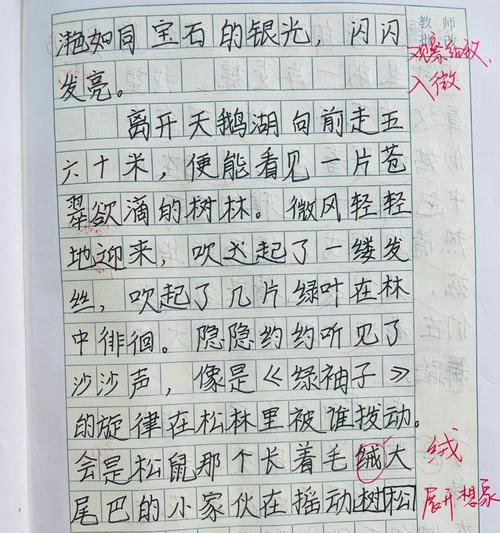 滟如同宝石的银光，闪闪
发亮。
离开天鹅湖向前走五
六十米，便能看见一片苍
翠欲滴的树林。微风轻轻
地迎来，吹起了一缕发
丝，吹起了几片绿叶在林
中徘徊。隐隐约约听见了
沙沙声，像是《绿袖子》
的旋律在松林里被谁拨动。
会是松鼠那个长着毛绒大
尾巴的小家伙在摇动树松
教师
批改
观察细致
入微
绒
展开想象